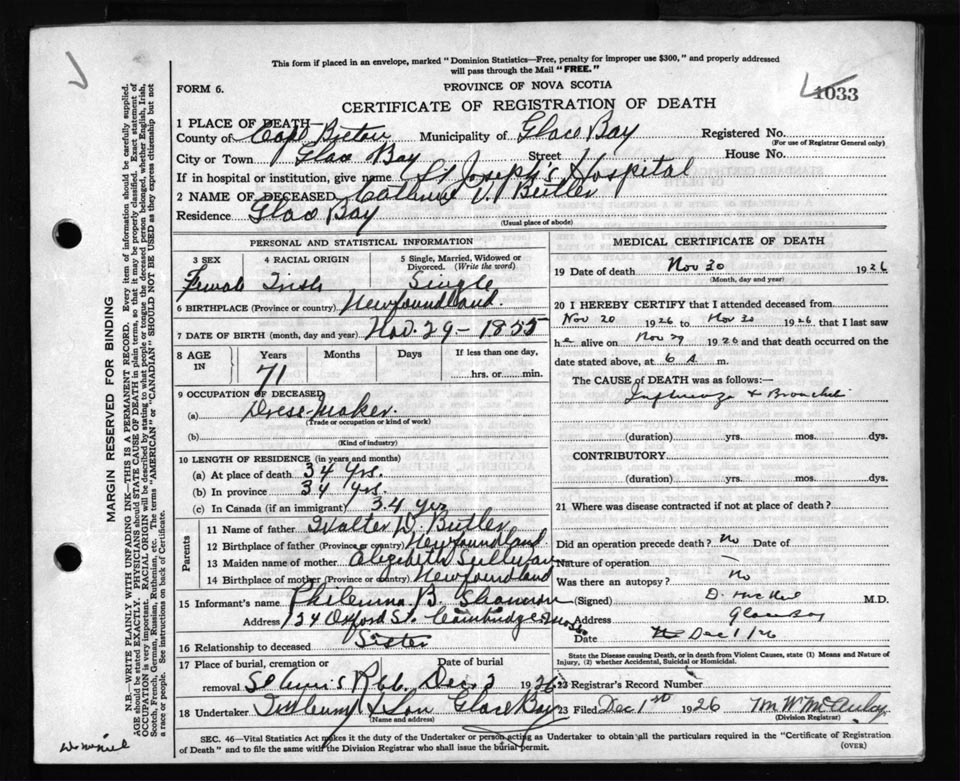 This form if placed in an envelope, marked "Dominion Statistics—Free, penalty for improper use $300," and properly addressed
will pass through the Mail "FREE."
FORM 6.
PROVINCE OF NOVA SCOTIA
1033
CERTIFICATE OF REGISTRATION OF DEATH
1 PLACE OF DEATH—
County of Cape Breton Municipality of Glace Bay Registered No.
(For use of Registrar General only)
City or Town Glace Bay Street House No.
If in hospital or institution, give name St Joseph's Hospital
2 NAME OF DECEASED Catherine V. Butler
Residence Glace Bay
(Usual place of abode)
PERSONAL AND STATISTICAL INFORMATION
3 SEX 4 RACIAL ORIGIN 5 Single, Married, Widowed or Divorced. (Write the word)
Female Irish Single
6 BIRTHPLACE (Province or country) Newfoundland.
7 DATE OF BIRTH (month, day and year) Nov. 29 - 1855
8 AGE IN Years Months Days If less than one day,
71 hrs. or min.
9 OCCUPATION OF DECEASED
(a) Dressmaker.
(Trade or occupation or kind of work)
(b)
(Kind of industry)
10 LENGTH OF RESIDENCE (in years and months)
(a) At place of death 34 yrs.
(b) In province 34 yrs.
(c) In Canada (if an immigrant) 34 yrs
Parents
11 Name of father Walter D. Butler
12 Birthplace of father (Province or country) Newfoundland.
13 Maiden name of mother Elizabeth Sullivan
14 Birthplace of mother (Province or country) Newfoundland
15 Informant's name B. Shannon
Address 124 Oxford St. Cambridge Mass.
16 Relationship to deceased Sister
17 Place of burial, cremation or removal Date of burial
Dec. 2 1926
18 Undertaker & Son Glace Bay
(Name and address)
MEDICAL CERTIFICATE OF DEATH
19 Date of death Nov 30 1926
(Month, day and year)
20 I HEREBY CERTIFY that I attended deceased from
Nov 20 1926 to Nov 30 1926 that I last saw
he alive on Nov 29 1926 and that death occurred on the
date stated above, at 6 A m.
The CAUSE OF DEATH was as follows:—
Influenza & Bronchitis
(duration) yrs. mos. dys.
CONTRIBUTORY
(duration) yrs. mos. dys.
21 Where was disease contracted if not at place of death?
Did an operation precede death? no Date of
Nature of operation
Was there an autopsy? No
(Signed) D. McNeil M.D.
Address Glace Bay
Date Dec 1/26
State the Disease causing Death, or in death from Violent Causes, state (1) Means and Nature of
Injury, (2) whether Accidental, Suicidal or Homicidal.
23 Registrar's Record Number
23 Filed Dec 1st 1926 M W McAulay
(Division Registrar)
SEC. 46—Vital Statistics Act makes it the duty of the Undertaker or person acting as Undertaker to obtain all the particulars required in the "Certificate of Registration
of Death" and to file the same with the Division Registrar who shall issue the burial permit.
(OVER)
MARGIN RESERVED FOR BINDING
N.B.—WRITE PLAINLY WITH UNFADING INK—THIS IS A PERMANENT RECORD. Every item of information should be carefully supplied.
AGE should be stated EXACTLY. PHYSICIANS should STATE CAUSE OF DEATH in plain terms, so that it may be properly classified. Exact statement of
OCCUPATION is very important. RACIAL ORIGIN will be described by stating to what people or tongue the deceased person belonged, whether English, Irish,
Scotch, French, German, Russian, Ruthenian, etc. The terms "AMERICAN" or "CANADIAN" SHOULD NOT BE USED as they express citizenship but not
a race or people. See instructions on back of Certificate.